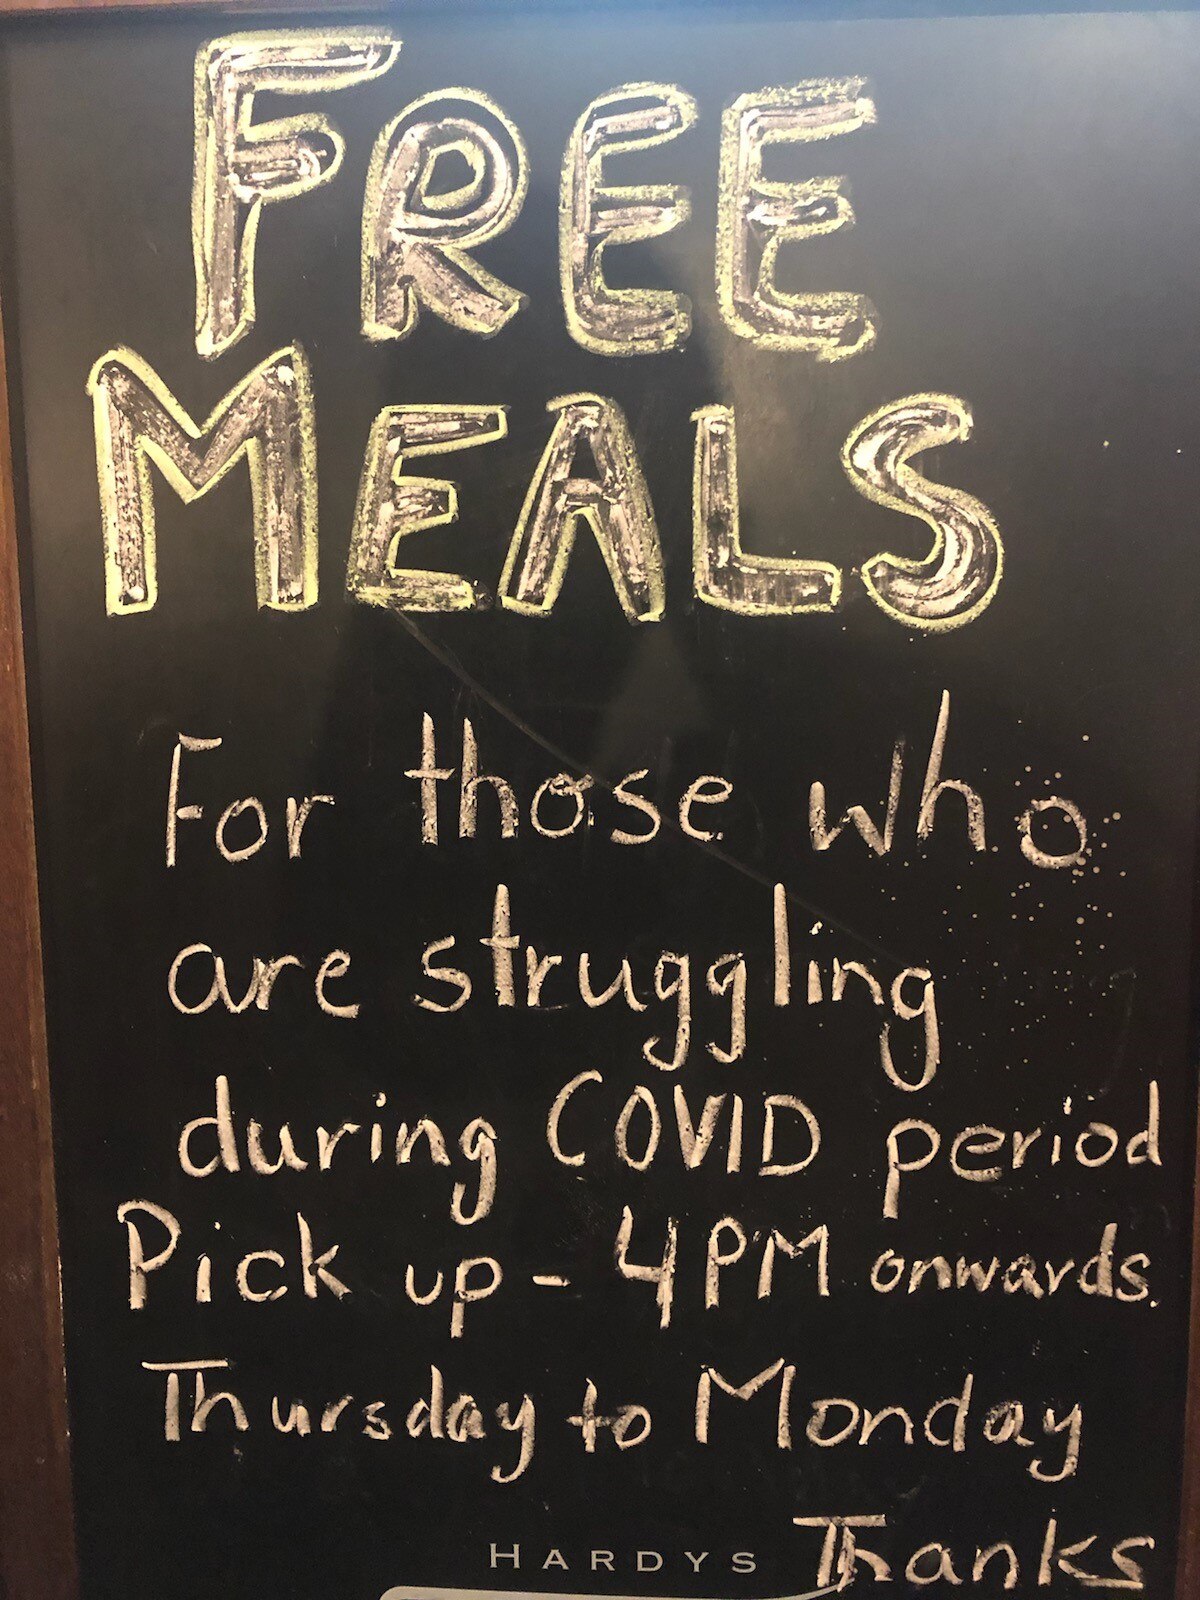 FREE
MEALS
For those who
are struggling
during COVID period
Pick up - 4PM onwards.
Thursday to Monday
Thanks
HARDYS